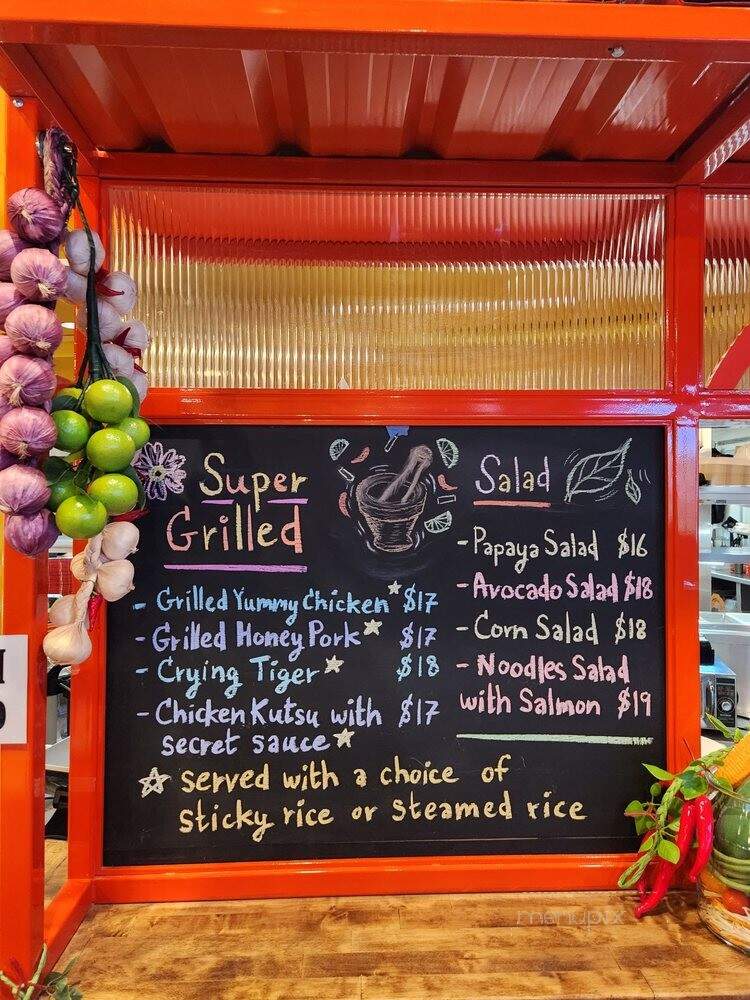 Super
Grilled
- Grilled Yummy Chicken☆ $17
- Grilled Honey Pork☆ $17
- Crying Tiger☆ $18
- Chicken Kutsu with $17
secret sauce☆
Salad
- Papaya Salad $16
- Avocado Salad $18
- Corn Salad $18
- Noodles Salad
with Salmon $19
☆ served with a choice of
sticky rice or steamed rice
menupix